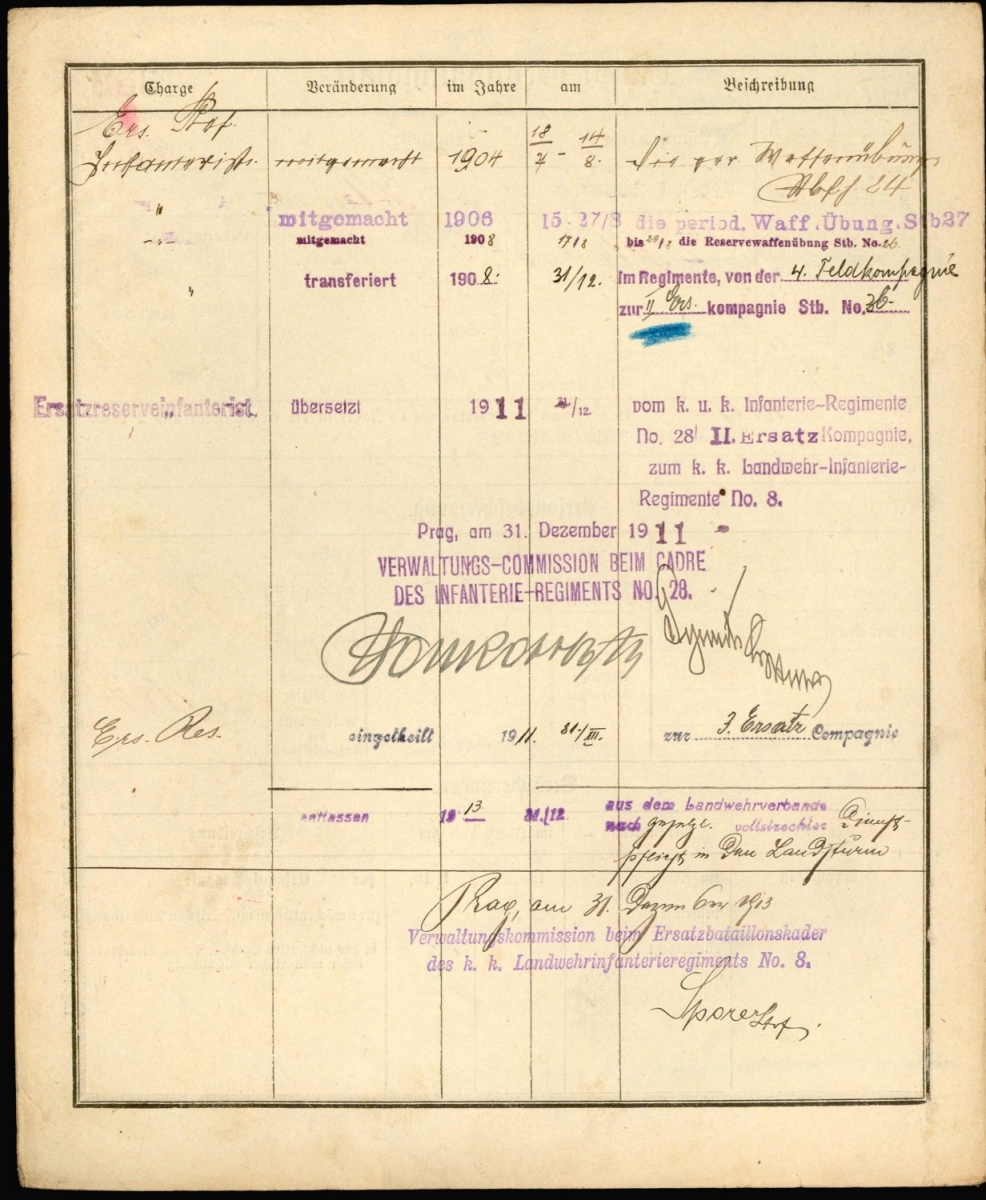 Charge Veränderung im Jahre am Beschreibung
Ers. Res.
Infanterist. mitgemacht 1904 18/7 - 14/8. die per Waffenübung
24
" mitgemacht 1906 15-27/8 die period. Waff. Übung. Stb 27
-"- mitgemacht 1908 17/8 bis 29/8 die Reservewaffenübung Stb. No. 26
" transferiert 1908. 31/12. im Regimente, von der 4. Feldkompagnie
zur II Ers. kompagnie Stb. No. 26.
Ersatzreserveinfanterist. " übersetzt 1911 31/12. vom k. u. k. Infanterie-Regimente
No. 28 II. Ersatz Kompagnie,
zum k. k. Landwehr-Infanterie-
Regimente No. 8.
Prag, am 31. Dezember 1911
VERWALTUNGS-COMMISSION BEIM CADRE
DES INFANTERIE-REGIMENTS NO. 28.
Ers. Res. eingetheilt 1911. 31./XII. zur 3. Ersatz Compagnie
entlassen 1913 31./12 aus dem Landwehrverbande
nach gesetzl. vollstreckter Dienst-
pflicht in den Landsturm
Prag, am 31. Dezember 1913
Verwaltungskommission beim Ersatzbataillonskader
des k. k. Landwehrinfanterieregiments No. 8.